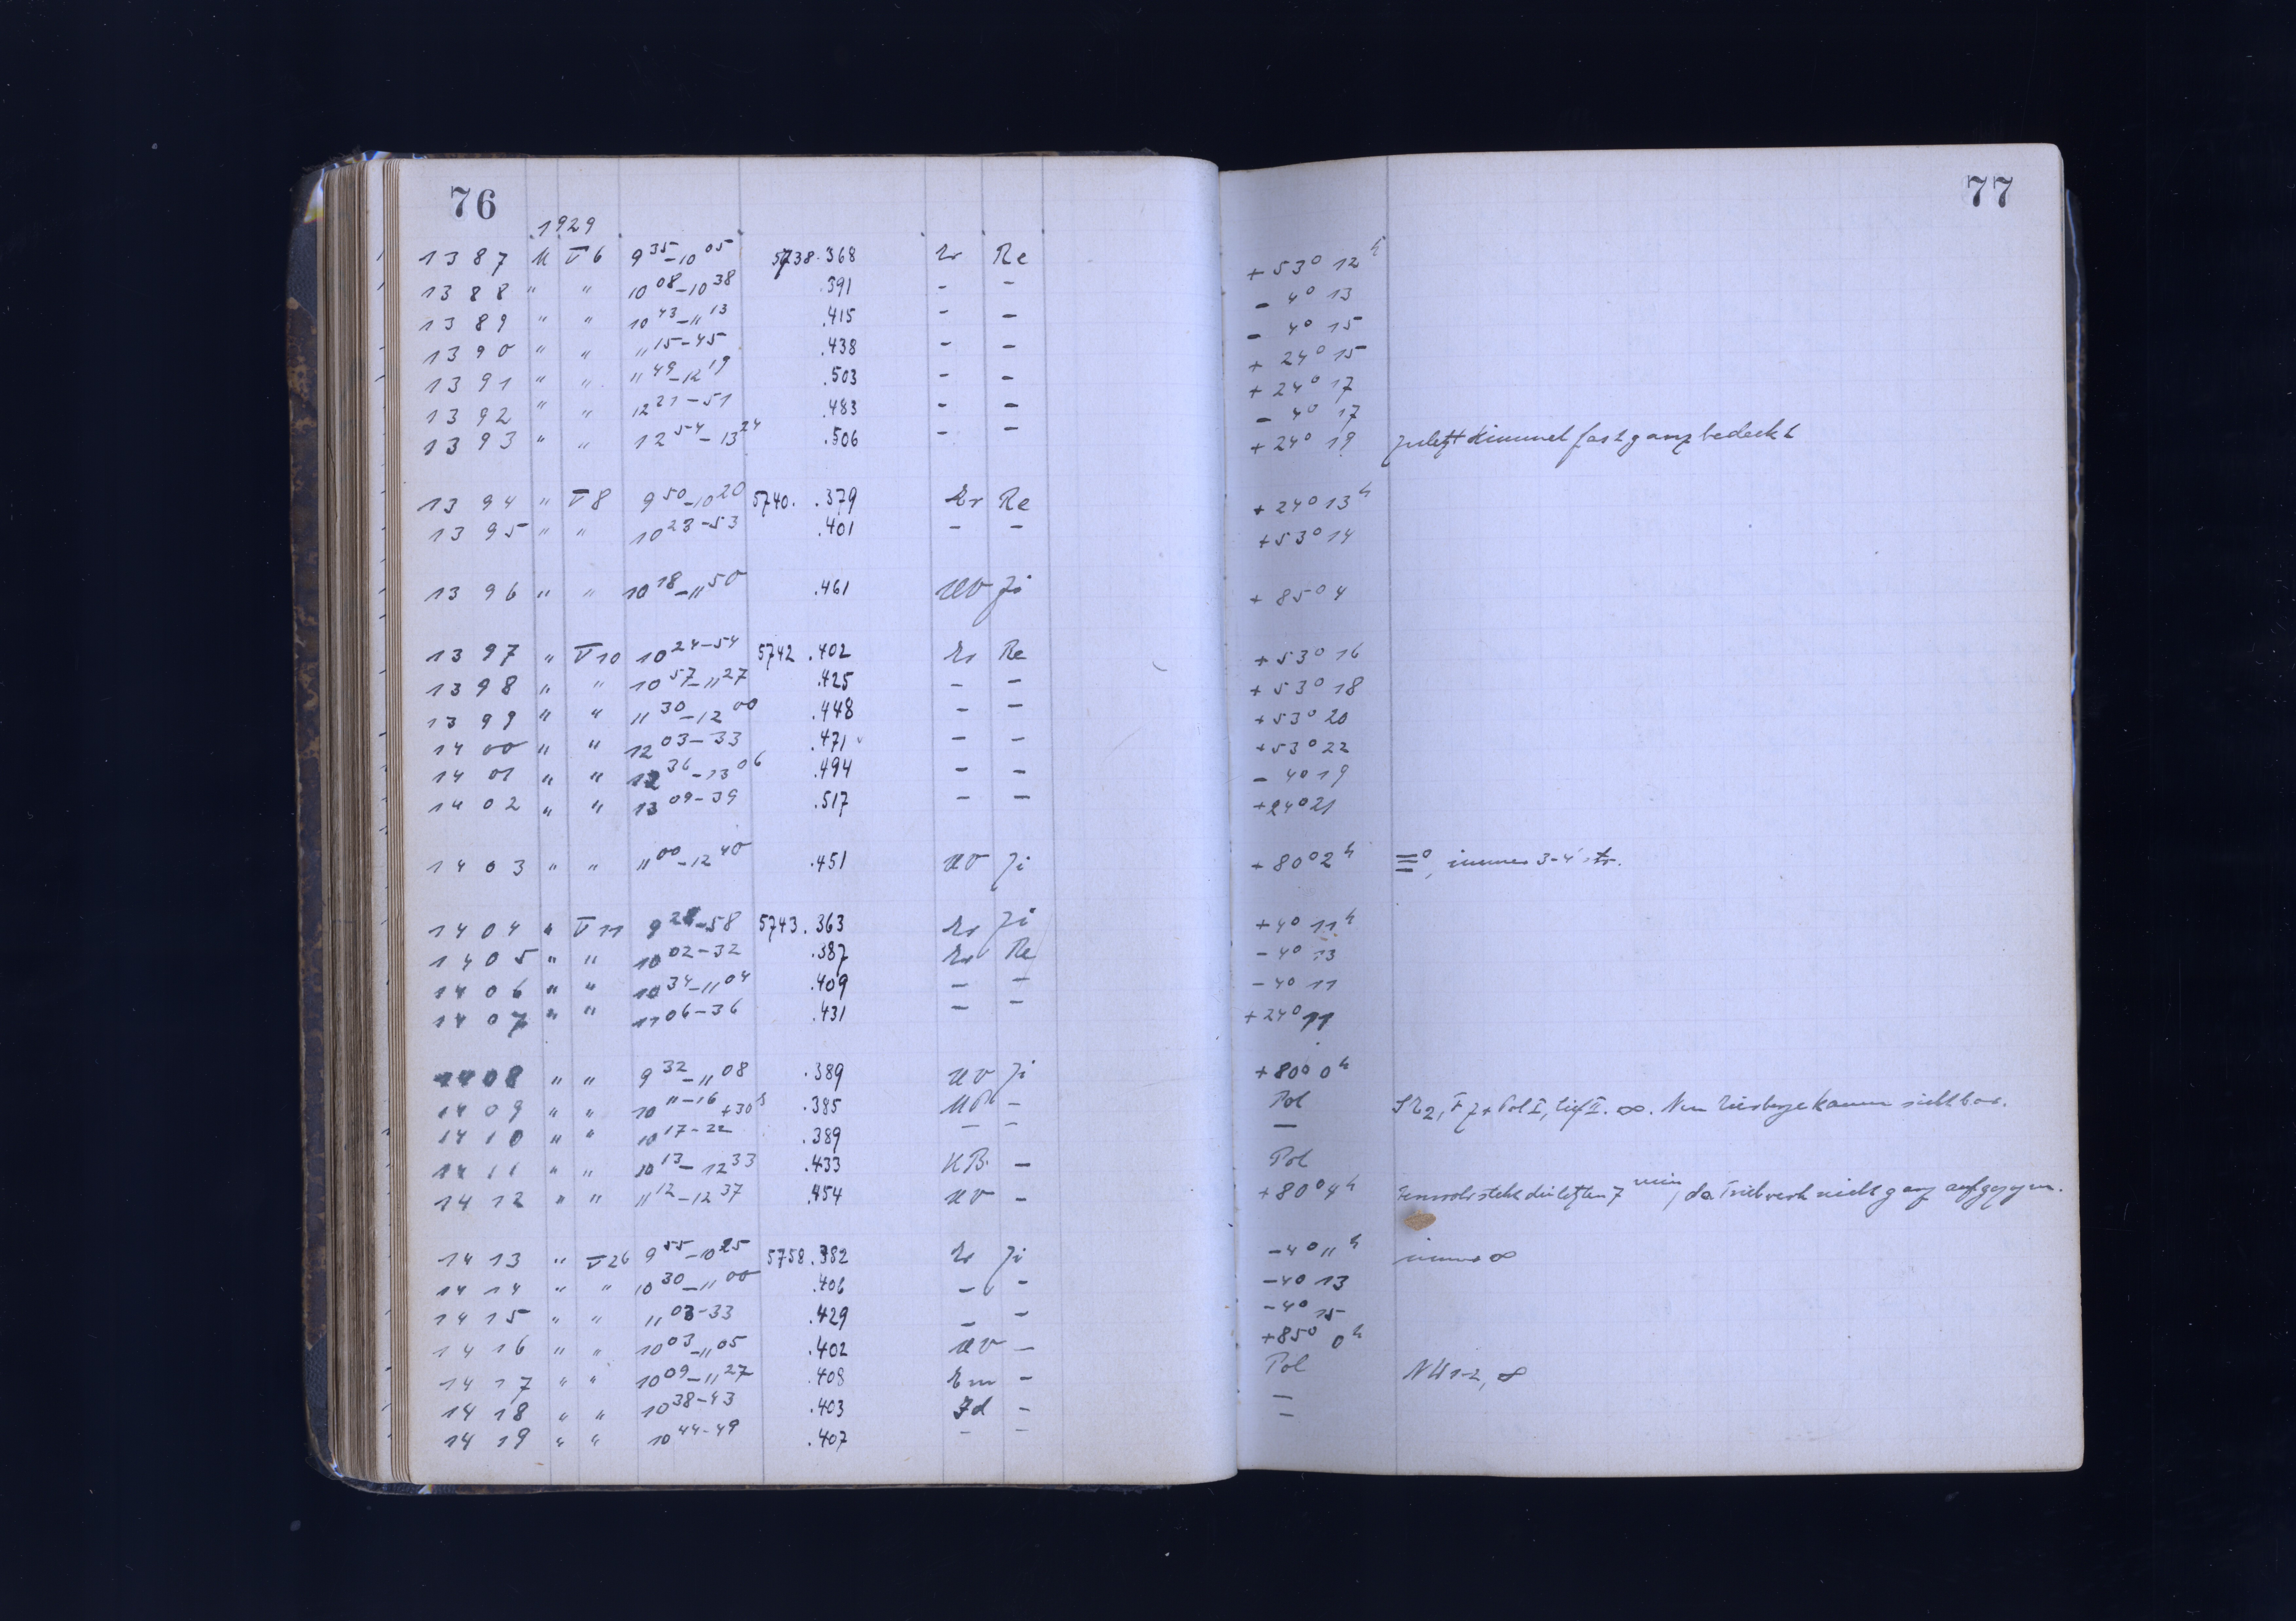 76
1929
1387 U V 6 9 35–10 05 5738.368 Er Re
1388 " " 10 08–10 38 .391 - -
1389 " " 10 43–11 13 .415 - -
1390 " " 11 15–45 .438 - -
1391 " " 11 49–12 19 .503 - -
1392 " " 12 21–51 .483 - -
1393 " " 12 54–13 24 .506 - -
1394 " V 8 9 50–10 20 5740. .379 Er Re
1395 " " 10 23–53 .401 - -
1396 " " 10 18–11 50 .461 UV Ji
1397 " V 10 10 24–54 5742 .402 Er Re
1398 " " 10 57–11 27 .425 - -
1399 " " 11 30–12 00 .448 - -
1400 " " 12 03–33 .471 - -
1401 " " 12 36–13 06 .494 - -
1402 " " 13 09–39 .517 - -
1403 " " 11 00–12 40 .451 UV Ji
1404 " V 11 9 28–58 5743.363 Er Ji
1405 " " 10 02–32 .387 Er Re
1406 " " 10 34–11 04 .409 - -
1407 " " 11 06–36 .431 - -
1408 " " 9 32–11 08 .389 UV Ji
1409 " " 10 11–16 +30 s .385 -
1410 " " 10 17–22 .389 - -
1411 " " 10 13–12 33 .433 KB. -
1412 " " 11 12–12 37 .454 UV -
1413 " V 26 9 55–10 25 5758.382 Er Ji
1414 " " 10 30–11 00 .406 - -
1415 " " 11 03–33 .429 - -
1416 " " 10 03–11 05 .402 UV -
1417 " " 10 09–11 27 .408 Em -
1418 " " 10 38–43 .403 Jd -
1419 " " 10 44–49 .407 - -
77
+53° 12 h
- 4° 13
- 4° 15
+ 24° 15
+ 24° 17
- 4° 17
+ 24° 19 zuletzt Himmel fast ganz bedeckt
+ 24° 13 h
+53° 14
+ 85° 4
+53° 16
+53° 18
+53° 20
+53° 22
- 4° 19
+24° 21
+80° 2 h ≡°, immer 3-4 str.
+4° 11 h
-4° 13
-4° 11
+24° 11
+80° 0 h
Pol kaum sichtbar.
—
Pol
+80° 4 h Fernrohr steht die letzten 7 min, da Triebwerk nicht ganz aufgezogen.
-4° 11 h immer ∞
-4° 13
-4° 15
+85° 0 h
Pol 1-2, ∞
—
—